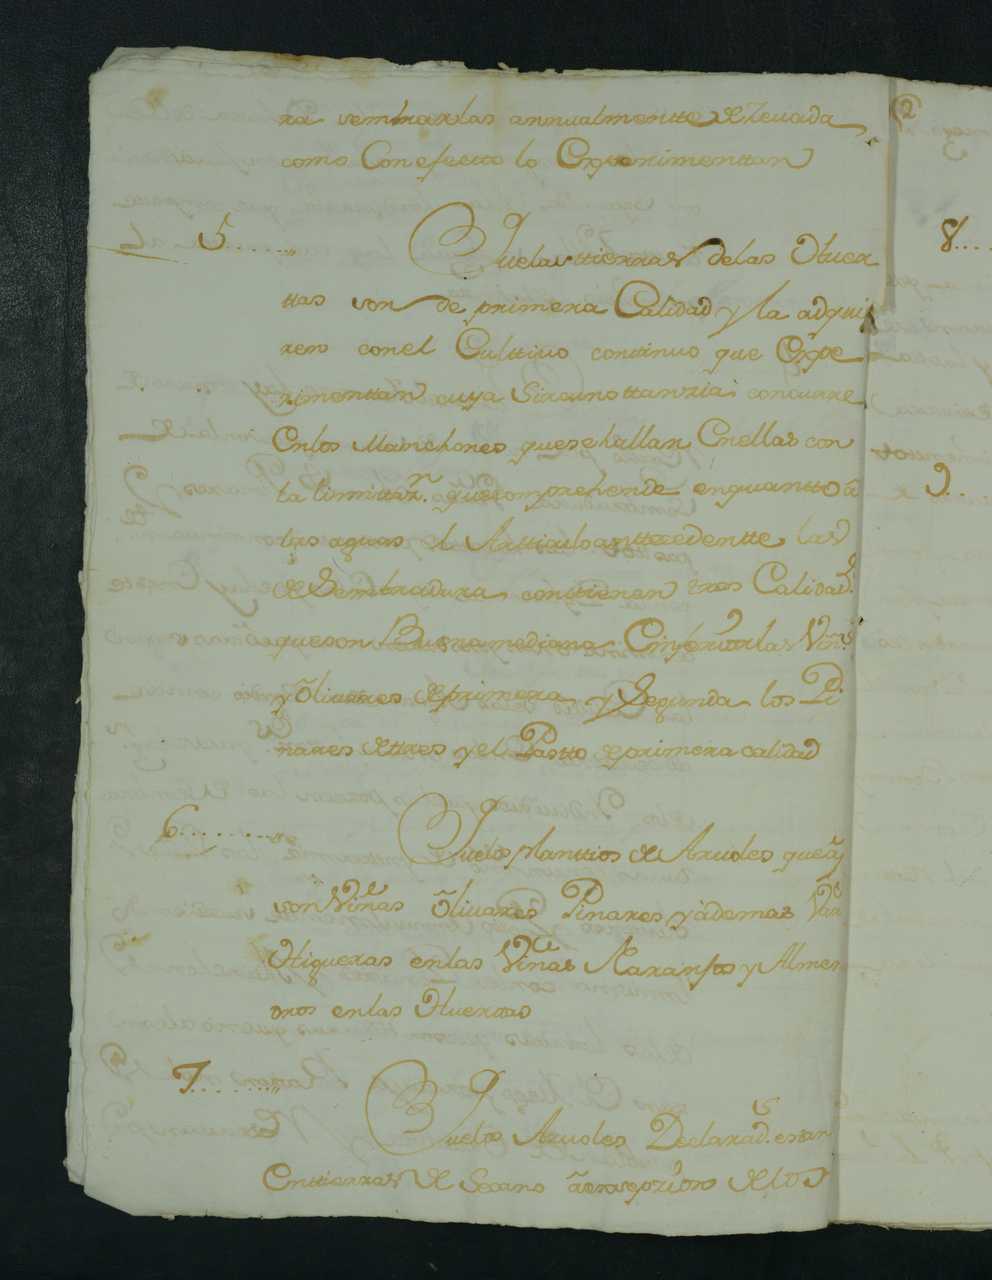 ra sembrarlas annualmentte de Zevada
como Con efectto lo Experimenttan
5....,, Que las ttierras de las Huer
ttas son de primera Calidad y la adqui
ren con el Culttivo continuo que Expe
rimenttan cuya Sircunsttanzia concurre
En los Manchones que se hallan En ellas con
la limittaz.n que comprehende en quantto â
las aguas el Arttículo anttezedentte las
de Sembradura conttienen tres Calidad.s
que son Buena mediana E inferior las Viñ.s
y Olivares de primera y Segunda los Pi
nares de ttres y el Pastto de primera calidad
6.........,, Que los Planttios de Arvoles que ay
son Viñas Olivares Pinares y âdemas
Higueras en las Viñas Naranjos y Almen
dros en las Huerttas
7.........,, Que los Arvoles Declarad.s estan
En ttierras de Secano â de los
2
8....
9...